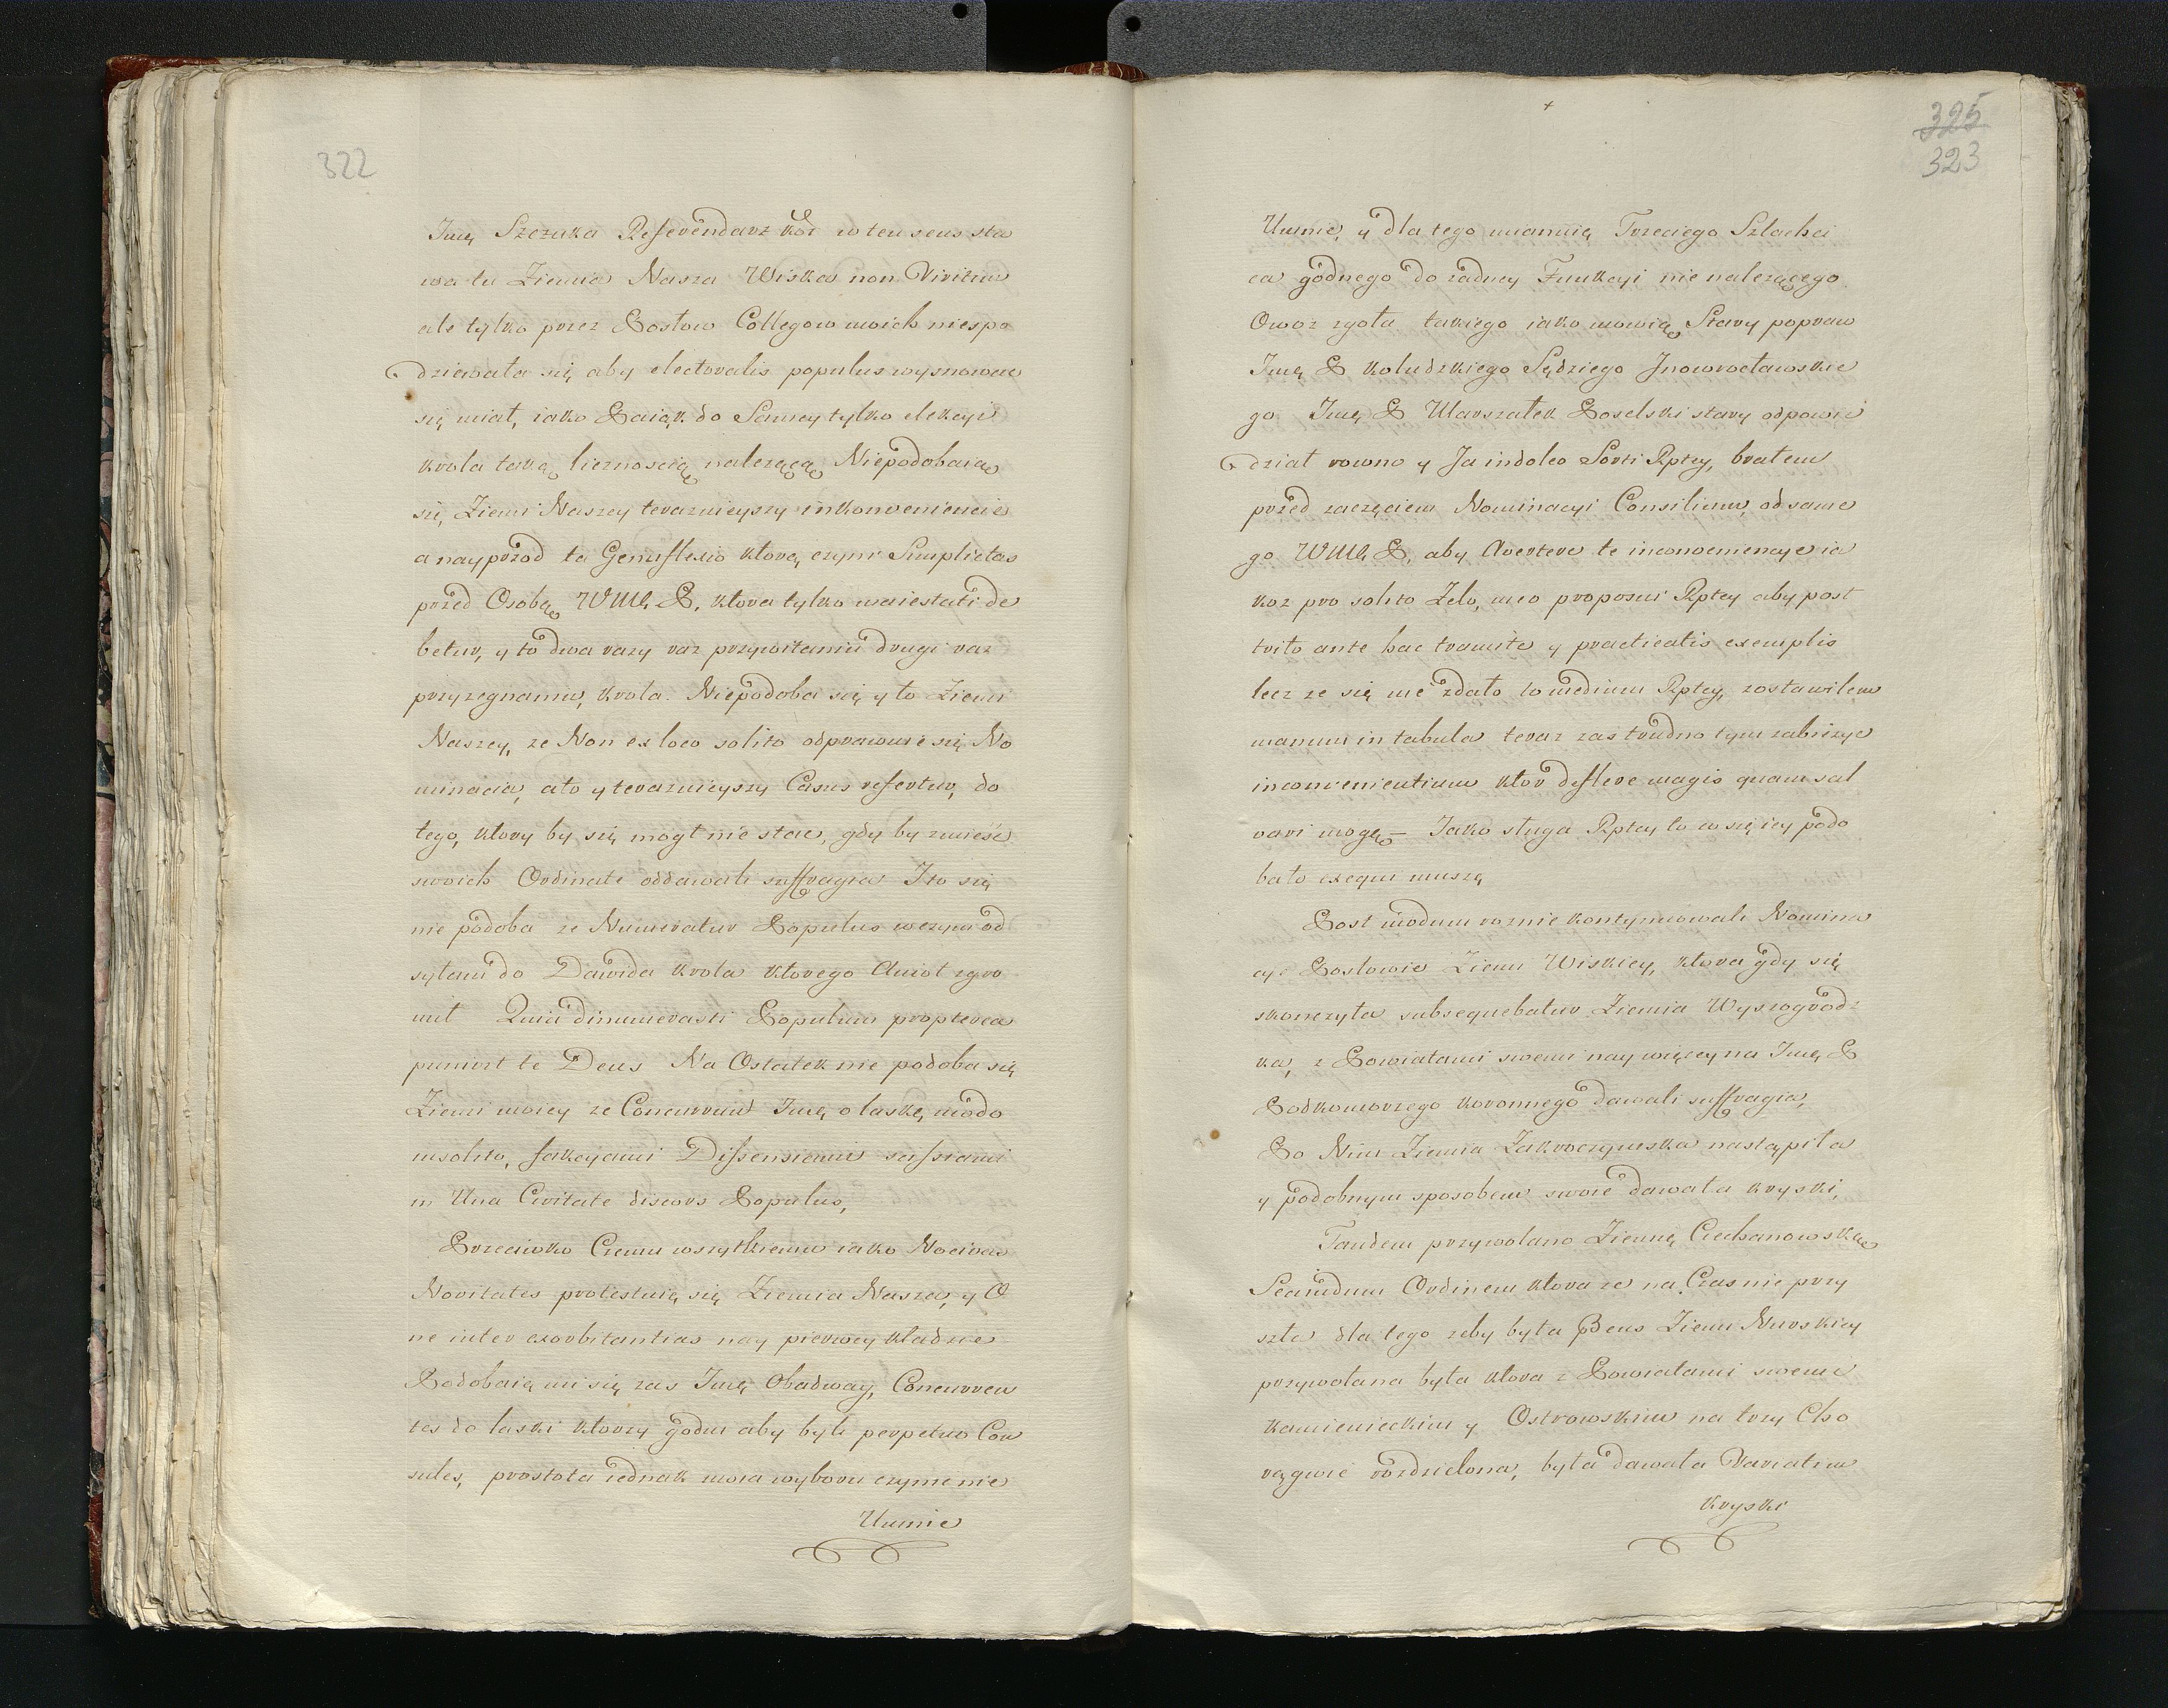 322
Imę Szczuka Referendarz kor w ten sens sta
wa tu Ziemia Nasza Wiska non Viritim
ale tylko przez Posłow Collegow moich niespo
dziewała się aby electoralis populus wysnowac
się miał, iako Paiąk do Samey tylko elekcyi
krola taką licznoscią nalezącą, Niepodobaią
się, Ziemi Naszey teraznieyszy inkonveniencie
a nayprzod ta Genuflexio ktorą czyni Simplicitas
przed Osobą WMę P. ktora tylko maiestati de
betur, y to dwa razy raz przywitaniu drugi raz
przyzegnaniu, krola. Niepodoba się y to Ziemi
Naszey, ze Non ex loco solito odprawuie się No
minacia, ato y teraznieyszy Casus refertur, do
tego, ktory by się mogł nie stac, gdy by z mieśc
swoich Ordinate oddawali suffragia I to się
nie podoba ze Numeratur Populus w czym od
sylam do Dawida krola ktorego Anioł zgro
mił Quia dinumerasti Populum propterea
punivit te Deus Na Ostatek nie podoba się
Ziemi moiey ze Concurruią Imę o laskę modo
insolito, fakcyami Dissensiami sussiami
in Una Civitate discors Populus,
Przeciwko Czemu wszytkiemu iako Nocivas
Novitates protestuię się Ziemia Nasza, y O
ne inter exorbitantias nay pierwey kładzie
Podobaią mi się zas Imę Obadway, Concurren
tes do laski ktorzy godni aby byli perpetuo Con
sules, prostota iednak moia wyboru czynic nie
Umnie
325
323
Umnie, y dla tego mianuię Trzeciego Szlachci
ca godnego do zadney Funkcyi nie nalezącego
Owoz zgoła takiego iako mowią Stary popraw
Imę P koludzkiego Sędziego Jnowrocławskie
go Imę P Marszałek Poselski stary odpowie
dział rowno y Ja indoleo Sorti Rptey, brałem
przed zaczęciem Nominacyi Consilium, od same
go WMę P, aby Avertere te inconveniencye ia
koz pro solito Zelo, meo proposui Rptey aby post
trito ante hac tramite y practicatis exemplis
lecz ze się nie zdało to medium Rptey, zostawilem
manum in tabula teraz zas trudno tym zabiezyc
inconvenientium ktor deflere magis quam sal
vari mogą – Iako sługa Rptey to co się iey podo
bało exequi muszę
Post modum roznie kontynuowali Nomina
cye Posłowie Ziemi Wiskiey, ktora gdy się
skonczyła subsequebatur Ziemia Wyszogrodz
ka, z Powiatami swemi nay więcey na Imę P
Podkomorzego koronnego dawali suffragia,
Po Niey Ziemia Zakroczymska nastąpiła
y podobnym sposobem swoie dawała kryski,
Tandem przywolano Ziemię Ciechanowską
Secundum Ordinem ktora ze na Czas nie przy
szła dla tego zeby była Bens Ziemi Nurskiey
przywołana była ktora z Powiatami swemi
kamienieckim y Ostrowskim na trzy Cho
rągwie rozdzielona, była dawała Variatim
kryski